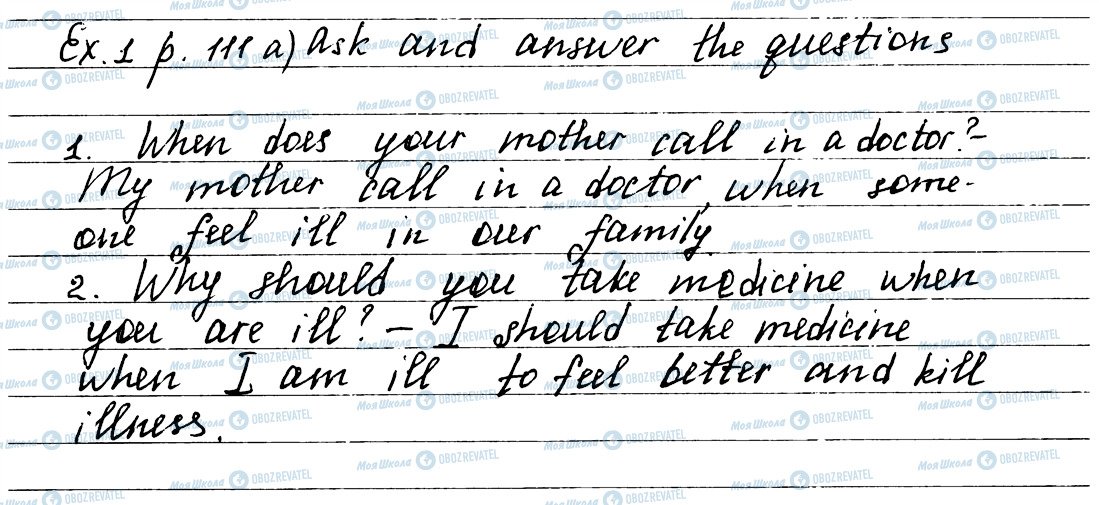 Ex. 1 p. 111 a) Ask and answer the questions
1. When does your mother call in a doctor? -
My mother call in a doctor, when some-
one feel ill in our family.
2. Why should you take medicine when
you are ill? - I should take medicine
when I am ill to feel better and kill
illness.